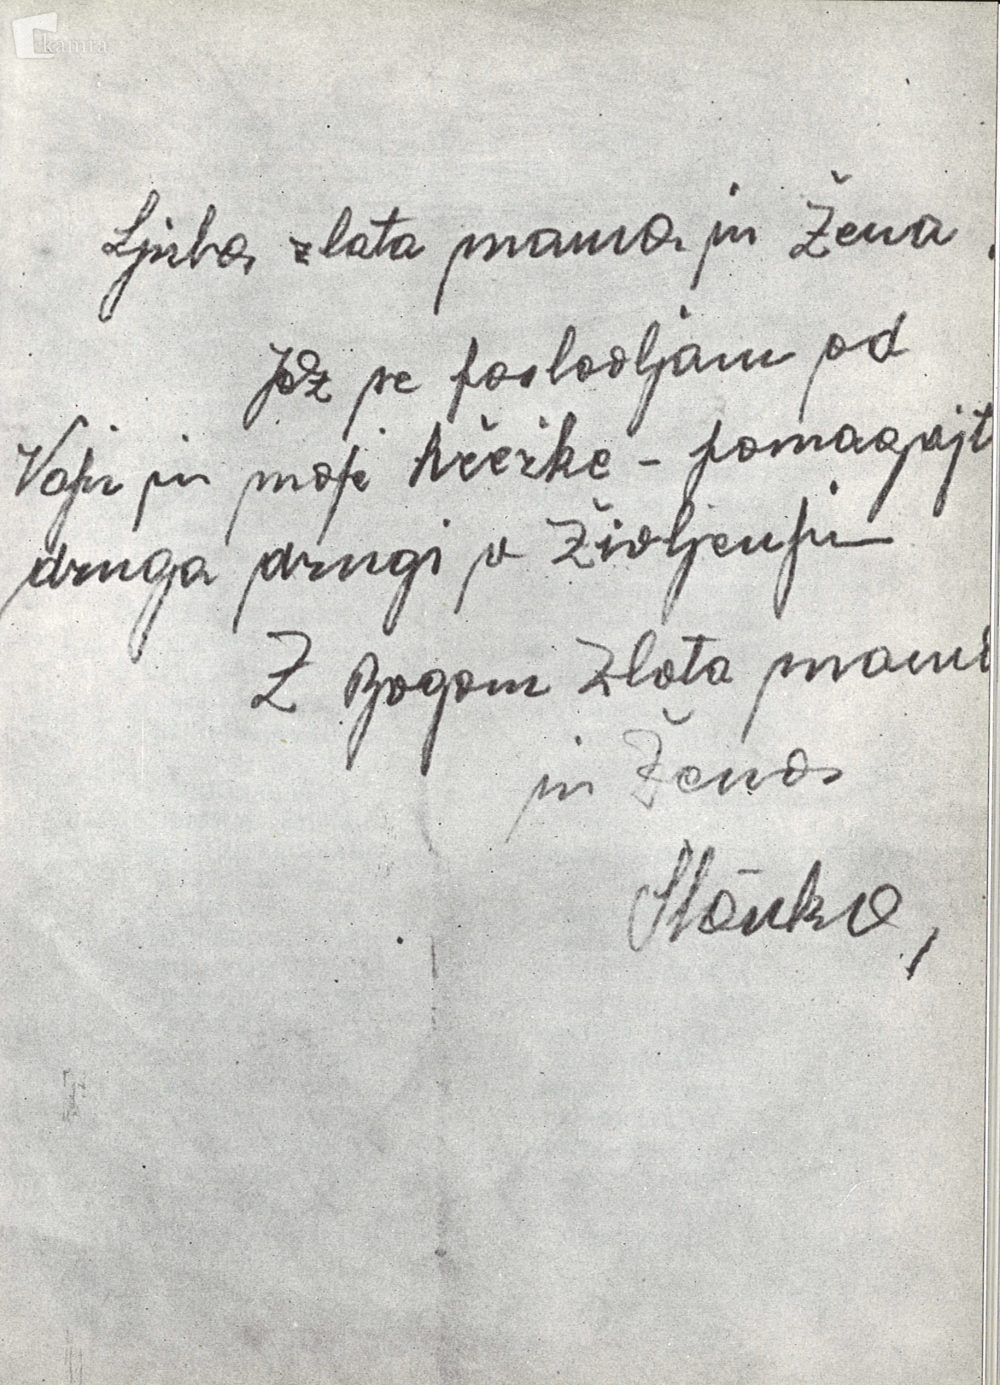 kamra
Ljuba zlata mama in Žena.
Jaz se poslovljam od
Vaju in moje hčerke - pomagajt
druga drugi v Življenju
Z Bogom Zlata mama
in Žena
Stanko,